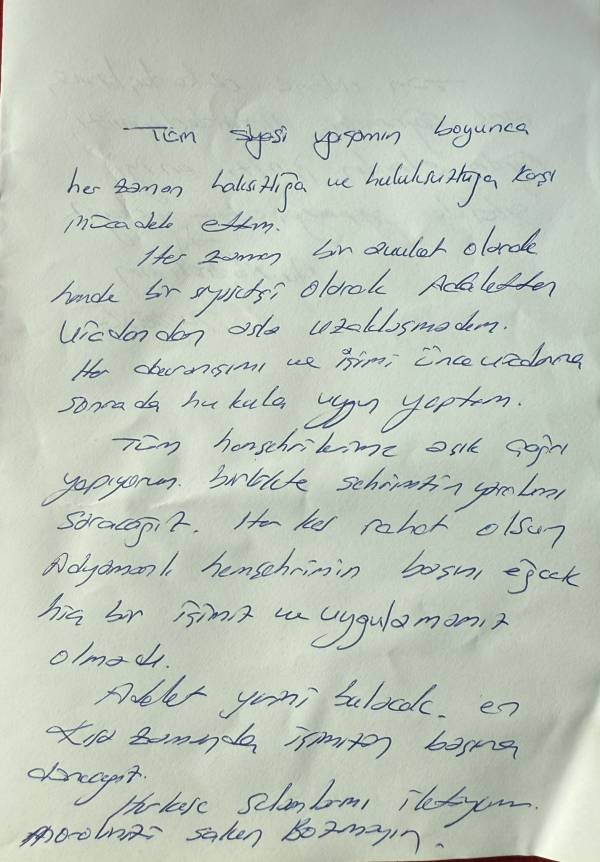 Tüm siyasi yaşamım boyunca
her zaman haksızlığa ve hukuksuzluğa karşı
mücadele ettim.
Her zaman bir avukat olarak
hemde bir siyasetçi olarak Adaletten
Vicdandan asla uzaklaşmadım.
Her davranışımı ve işimi önce vicdanıma
sonrada hukuka uygun yaptım.
Tüm hemşehrilerime açık çağrı
yapıyorum. birlikte şehrimizin yaralarını
saracağız. Herkes rahat olsun
Adıyamanlı hemşehrimin başını eğecek
hiç bir işimiz ve uygulamamız
olmadı.
Adalet yerini bulacak. en
kısa zamanda işimizin başına
döneceğiz.
Herkese selamlarımı iletiyorum.
moralinizi sakın Bozmayın.